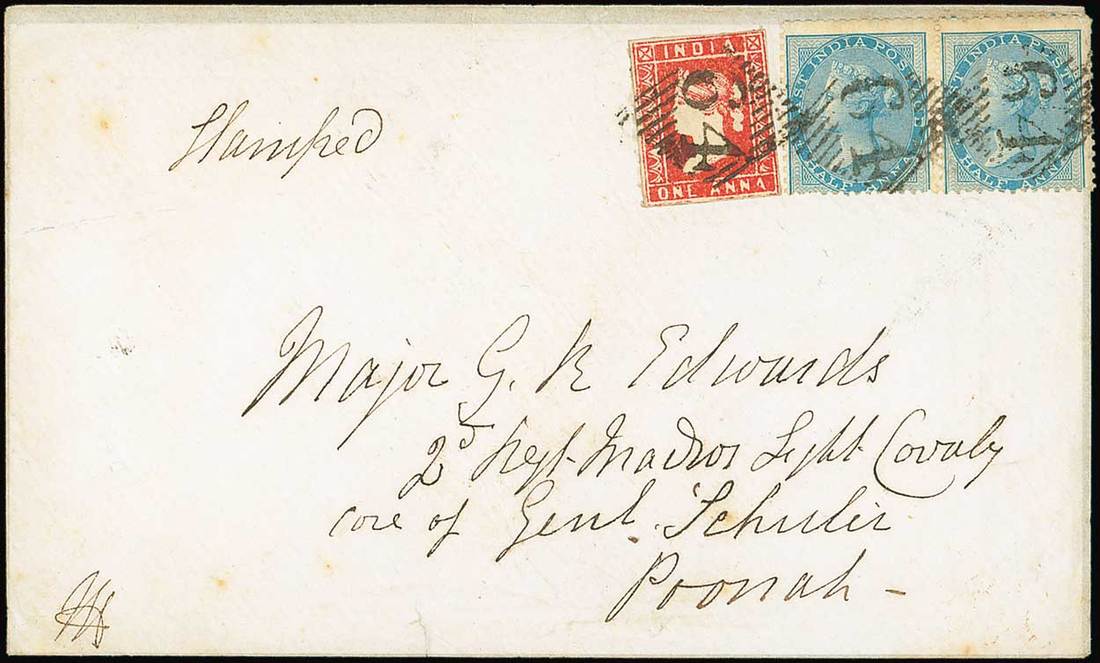 Stamped
INDIA
ONE ANNA
64
EAST INDIA POSTAGE
HALF ANNA
64
EAST INDIA POSTAGE
HALF ANNA
64
Major G. R Edwards
2d Regt Madras Light Cavaly
care of Genl. Schuler
Poonah -